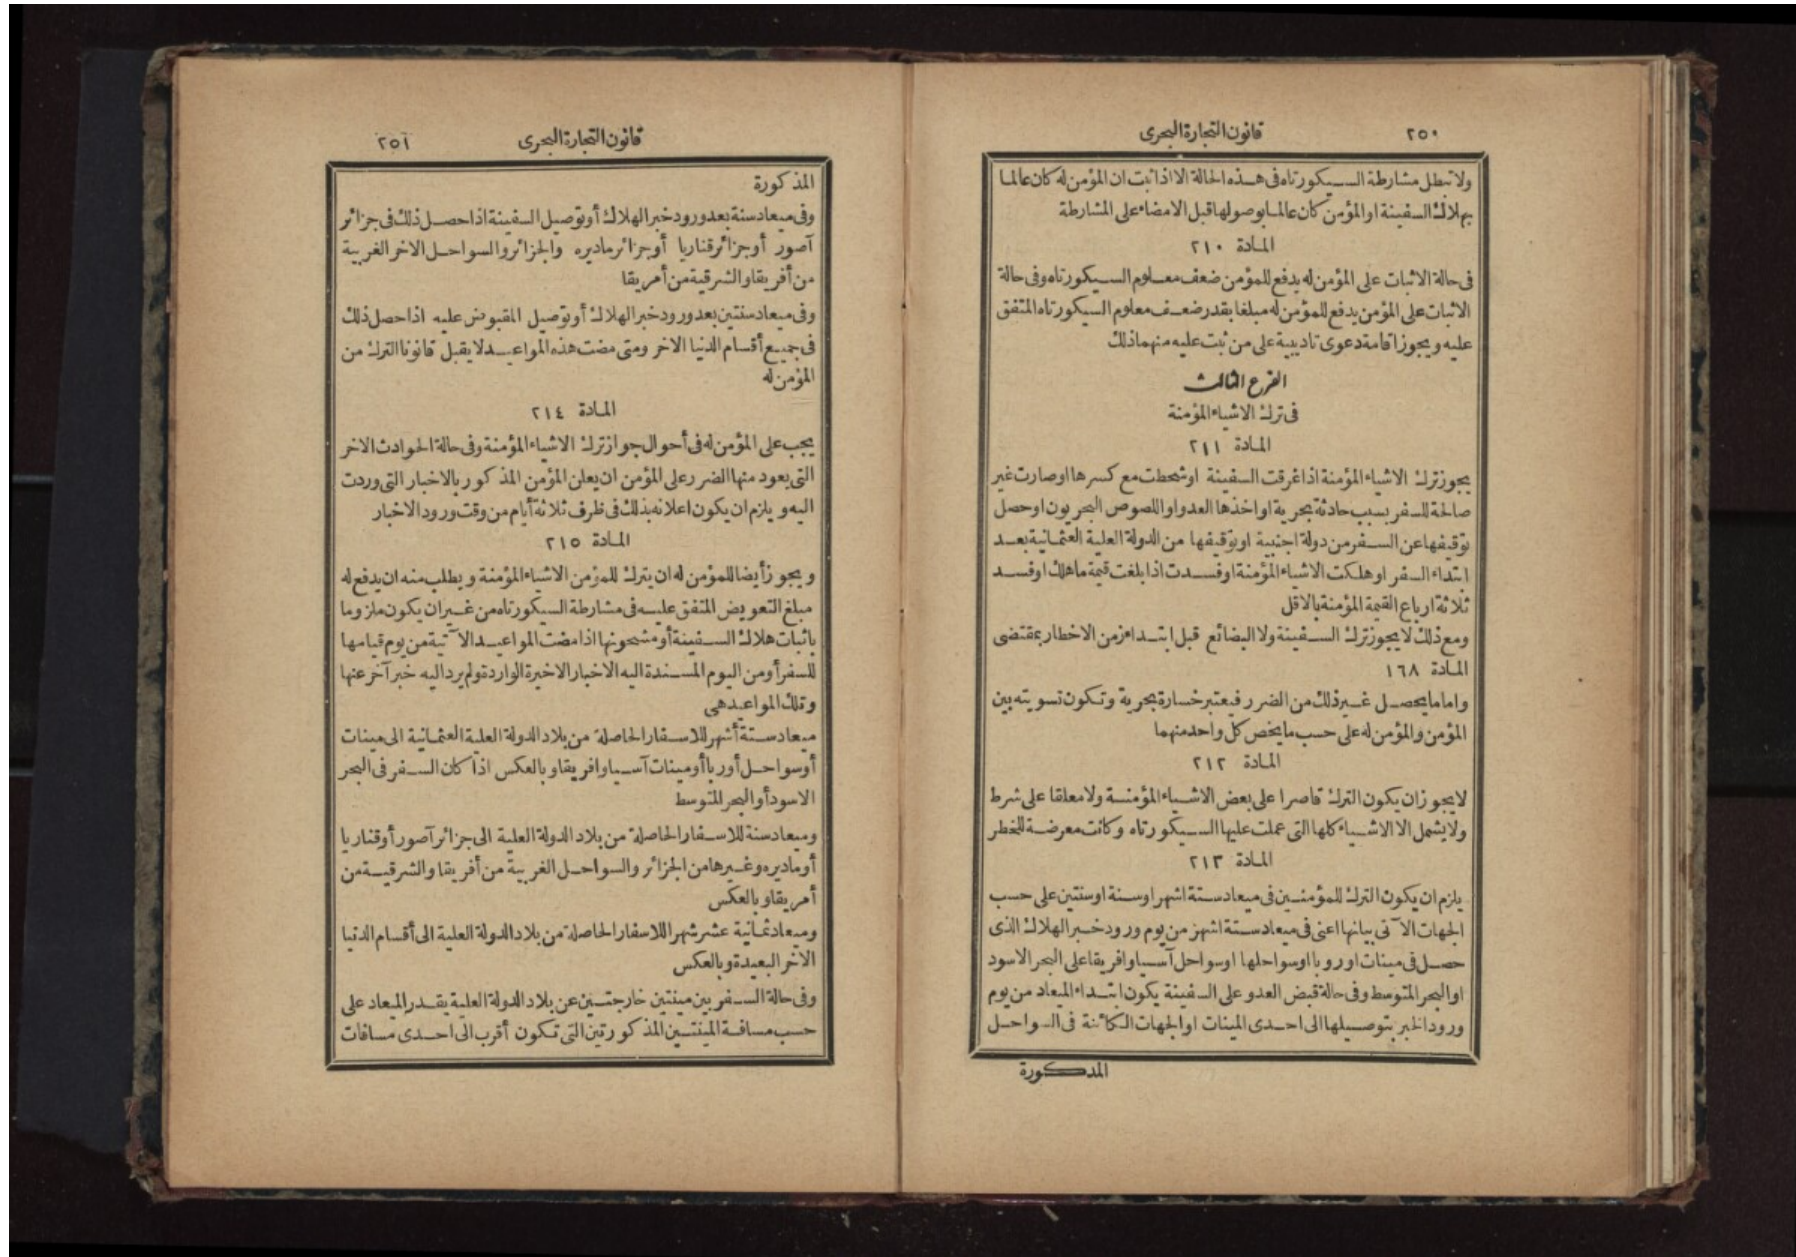 ٢٥٠
قانون التجارة البحرى
ولا تبطل مشارطة السيكورتاه فى هذه الحالة الا اذا ثبت ان المؤمن له كان عالما
بهلاك السفينة او المؤمن كان عالما بوصولها قبل الامضاء على المشارطة
المادة ٢١٠
فى حالة الاثبات على المؤمن له يدفع للمؤمن ضعف معلوم السيكورتاه وفى حالة
الاثبات على المؤمن يدفع للمؤمن له مبلغا بقدر ضعف معلوم السيكورتاه المتفق
عليه ويجوز اقامة دعوى تاديبية على من ثبت عليه منهما ذلك
الفرع الثالث
فى ترك الاشياء المؤمنة
المادة ٢١١
يجوز ترك الاشياء المؤمنة اذا غرقت السفينة او شحطت مع كسرها او صارت غير
صالحة للسفر بسبب حادثة بحرية او اخذها العدو او اللصوص البحريون او حصل
توقيفها عن السفر من دولة اجنبية او توقيفها من الدولة العلية العثمانية بعد
ابتداء السفر او هلكت الاشياء المؤمنة او فسدت اذا بلغت قيمة ما هلك او فسد
ثلاثة ارباع القيمة المؤمنة بالاقل
ومع ذلك لا يجوز ترك السفينة ولا البضائع قبل ابتداء زمن الاخطار بمقتضى
المادة ١٦٨
واما ما يحصل غير ذلك من الضرر فيعتبر خسارة بحرية وتكون تسويته بين
المؤمن والمؤمن له على حسب ما يخص كل واحد منهما
المادة ٢١٢
لا يجوز ان يكون الترك قاصرا على بعض الاشياء المؤمنة ولا معلقا على شرط
ولا يشمل الا الاشياء كلها التى عملت عليها السيكورتاه وكانت معرضة للخطر
المادة ٢١٣
يلزم ان يكون الترك للمؤمنين فى ميعاد ستة اشهر او سنة او سنتين على حسب
الجهات الآتى بيانها اعنى فى ميعاد ستة اشهر من يوم ورود خبر الهلاك الذى
حصل فى مينات اوروبا او سواحلها او سواحل آسيا وافريقا على البحر الاسود
او البحر المتوسط وفى حالة قبض العدو على السفينة يكون ابتداء الميعاد من يوم
ورود الخبر بتوصيلها الى احدى المينات او الجهات الكائنة فى السواحل
المذكورة
قانون التجارة البحرى
٢٥١
المذكورة
وفى ميعاد سنة بعد ورود خبر الهلاك أو توصيل السفينة اذا حصل ذلك فى جزائر
آصور أو جزائر قناريا أو جزائر ماديره والجزائر والسواحل الاخر الغربية
من أفريقا والشرقية من أمريقا
وفى ميعاد سنتين بعد ورود خبر الهلاك أو توصيل المقبوض عليه اذا حصل ذلك
فى جميع أقسام الدنيا الاخر ومتى مضت هذه المواعيد لا يقبل قانونا الترك من
المؤمن له
المادة ٢١٤
يجب على المؤمن له فى أحوال جواز ترك الاشياء المؤمنة وفى حالة الحوادث الاخر
التى يعود منها الضرر على المؤمن ان يعلن المؤمن المذكور بالاخبار التى وردت
اليه ويلزم ان يكون اعلانه بذلك فى ظرف ثلاثة أيام من وقت ورود الاخبار
المادة ٢١٥
ويجوز أيضا للمؤمن له ان يترك للمؤمن الاشياء المؤمنة ويطلب منه ان يدفع له
مبلغ التعويض المتفق عليه فى مشارطة السيكورتاه من غير ان يكون ملزوما
باثبات هلاك السفينة أو مشحونها اذا مضت المواعيد الآتية من يوم قيامها
للسفر أو من اليوم المسندة اليه الاخبار الاخيرة الواردة ولم يرد اليه خبر آخر عنها
وتلك المواعيد هى
ميعاد ستة أشهر للاسفار الحاصلة من بلاد الدولة العلية العثمانية الى مينات
أو سواحل أوربا أو مينات آسيا وافريقا وبالعكس اذا كان السفر فى البحر
الاسود أو البحر المتوسط
وميعاد سنة للاسفار الحاصلة من بلاد الدولة العلية الى جزائر آصور أو قناريا
أو ماديره وغيرها من الجزائر والسواحل الغربية من أفريقا والشرقية من
أمريقا وبالعكس
وميعاد ثمانية عشر شهرا للاسفار الحاصلة من بلاد الدولة العلية الى أقسام الدنيا
الاخر البعيدة وبالعكس
وفى حالة السفر بين مينتين خارجتين عن بلاد الدولة العلية يقدر الميعاد على
حسب مسافة المينتين المذكورتين التى تكون أقرب الى احدى مسافات